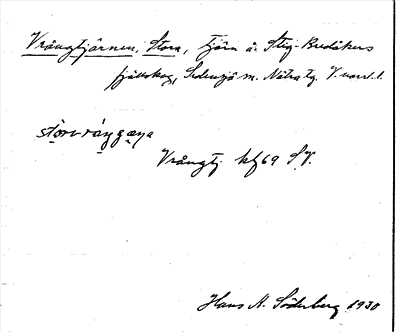 Vrångtjärnen, Stora, tjärn å Stig-Bredåkers
fjällskog, Sidensjö sn. Nätra tg. V.norrl. l.
Vrångtj kbf 69 S.V.
Hans A. Söderberg 1930